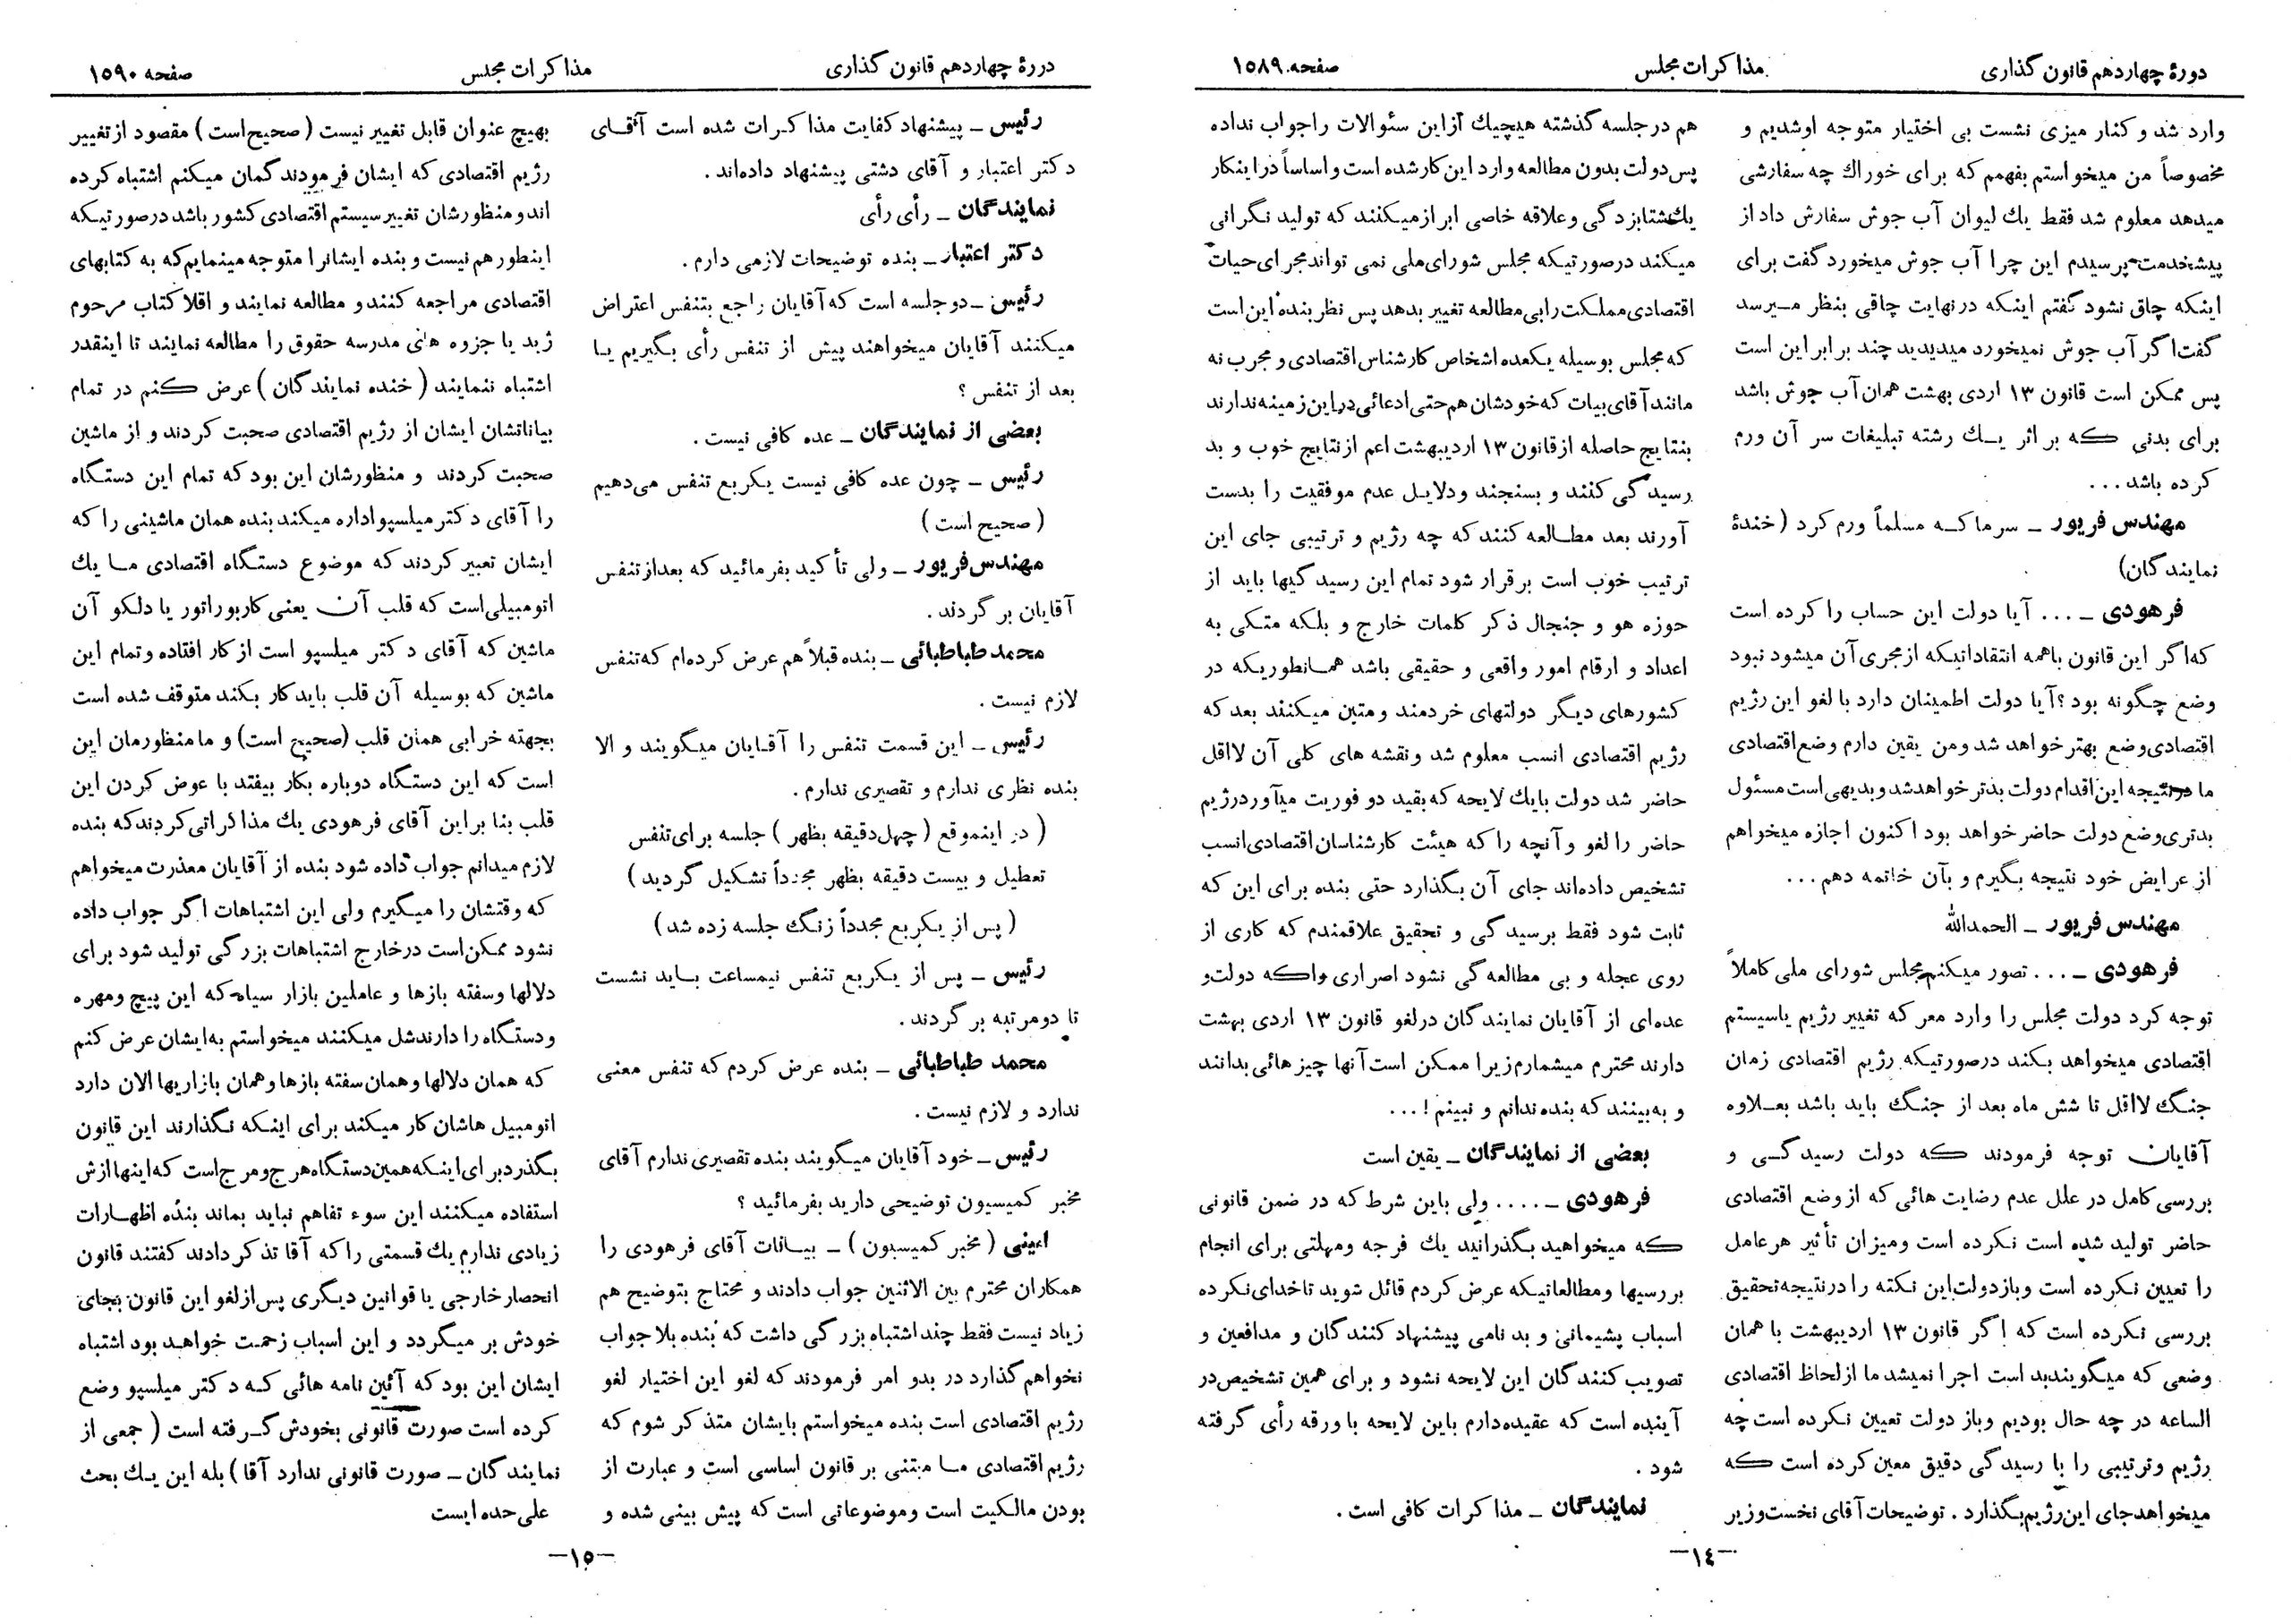 دورهٔ چهاردهم قانون گذاری
مذاکرات مجلس
صفحه ۱۵۸۹
وارد شد و کنار میزی نشست بی اختیار متوجه اوشدیم و
مخصوصاً من میخواستم بفهمم که برای خوراك چه سفارشی
میدهد معلوم شد فقط یك لیوان آب جوش سفارش داد از
پیشخدمت پرسیدم این چرا آب جوش میخورد گفت برای
اینکه چاق نشود گفتم اینکه در نهایت چاقی بنظر میرسد
گفت اگر آب جوش نمیخورد میدیدید چند برابر این است
پس ممکن است قانون ۱۳ اردی بهشت همان آب جوش باشد
برای بدنی که بر اثر یك رشته تبلیغات سر آن ورم
کرده باشد ...
مهندس فریور ـ سرما که مسلماً ورم کرد (خندهٔ
نمایندگان)
فرهودی ـ ... آیا دولت این حساب را کرده است
که اگر این قانون باهمه انتقاداتیکه از مجری آن میشود نبود
وضع چگونه بود ؟ آیا دولت اطمینان دارد با لغو این رژیم
اقتصادی وضع بهتر خواهد شد ومن یقین دارم وضع اقتصادی
ما در نتیجه این اقدام دولت بدتر خواهد شد و بدیهی است مسئول
بدتری وضع دولت حاضر خواهد بود اکنون اجازه میخواهم
از عرایض خود نتیجه بگیرم و بآن خاتمه دهم ...
مهندس فریور ـ الحمدالله
فرهودی ـ ... تصور میکنم مجلس شورای ملی کاملاً
توجه کرد دولت مجلس را وارد معر که تغییر رژیم یاسیستم
اقتصادی میخواهد بکند درصورتیکه رژیم اقتصادی زمان
جنگ لااقل تا شش ماه بعد از جنگ باید باشد بعلاوه
آقایان توجه فرمودند که دولت رسیدگی و
بررسی کامل در علل عدم رضایت هائی که از وضع اقتصادی
حاضر تولید شده است نکرده است ومیزان تأثیر هرعامل
را تعیین نکرده است و باز دولت این نکته را در نتیجه تحقیق
بررسی نکرده است که اگر قانون ۱۳ اردیبهشت با همان
وضعی که میگویند بد است اجرا نمیشد ما از لحاظ اقتصادی
الساعه در چه حال بودیم وباز دولت تعیین نکرده است چه
رژیم وترتیبی را با رسیدگی دقیق معین کرده است که
میخواهد جای این رژیم بگذارد . توضیحات آقای نخست وزیر
هم در جلسه گذشته هیچیك از این سئوالات را جواب نداده
پس دولت بدون مطالعه وارد این کار شده است و اساساً در اینکار
یك شتابزدگی وعلاقه خاصی ابراز میکنند که تولید نگرانی
میکند درصورتیکه مجلس شورای ملی نمی تواند مجرای حیات
اقتصادی مملکت را بی مطالعه تغییر بدهد پس نظر بنده این است
که مجلس بوسیله یکعده اشخاص کارشناس اقتصادی و مجرب نه
مانند آقای بیات که خودشان هم حتی ادعائی در این زمینه ندارند
بنتایج حاصله از قانون ۱۳ اردیبهشت اعم از نتایج خوب و بد
رسیدگی کنند و بسنجند ودلایل عدم موفقیت را بدست
آورند بعد مطالعه کنند که چه رژیم و ترتیبی جای این
ترتیب خوب است برقرار شود تمام این رسیدگیها باید از
حوزه هو و جنجال ذکر کلمات خارج و بلکه متکی به
اعداد و ارقام امور واقعی و حقیقی باشد همانطوریکه در
کشورهای دیگر دولتهای خردمند ومتین میکنند بعد که
رژیم اقتصادی انسب معلوم شد و نقشه های کلی آن لااقل
حاضر شد دولت با یك لایحه که بقید دو فوریت میآورد رژیم
حاضر را لغو و آنچه را که هیئت کارشناسان اقتصادی انسب
تشخیص داده اند جای آن بگذارد حتی بنده برای این که
ثابت شود فقط برسیدگی و تحقیق علاقمندم که کاری از
روی عجله و بی مطالعه گی نشود اصراری را که دولت و
عده ای از آقایان نمایندگان در لغو قانون ۱۳ اردی بهشت
دارند محترم میشمارم زیرا ممکن است آنها چیزهائی بدانند
و به بینند که بنده ندانم و نبینم ! ...
بعضی از نمایندگان ـ یقین است
فرهودی ـ .... ولی باین شرط که در ضمن قانونی
که میخواهید بگذرانید یك فرجه ومهلتی برای انجام
بررسیها ومطالعاتیکه عرض کردم قائل شوید تا خدای نکرده
اسباب پشیمانی و بد نامی پیشنهاد کنندگان و مدافعین و
تصویب کنندگان این لایحه نشود و برای همین تشخیص در
آینده است که عقیده دارم باین لایحه با ورقه رأی گرفته
شود .
نمایندگان ـ مذاکرات کافی است .
ـ۱٤ـ
دررهٔ چهاردهم قانون گذاری
مذاکرات مجلس
صفحه ۱۵۹۰
رئیس ـ پیشنهاد کفایت مذاکرات شده است آقای
دکتر اعتبار و آقای دشتی پیشنهاد داده اند .
نمایندگان ـ رأی رأی
دکتر اعتبار ـ بنده توضیحات لازمی دارم .
رئیس ـ دو جلسه است که آقایان راجع بتنفس اعتراض
میکنند آقایان میخواهند پیش از تنفس رأی بگیریم یا
بعد از تنفس ؟
بعضی از نمایندگان ـ عده کافی نیست .
رئیس ـ چون عده کافی نیست یکربع تنفس می دهیم
( صحیح است )
مهندس فریور ـ ولی تأکید بفرمائید که بعد از تنفس
آقایان بر گردند .
محمد طباطبائی ـ بنده قبلاً هم عرض کرده ام که تنفس
لازم نیست .
رئیس ـ این قسمت تنفس را آقایان میگویند و الا
بنده نظری ندارم و تقصیری ندارم .
( در اینموقع ( چهل دقیقه بظهر ) جلسه برای تنفس
تعطیل و بیست دقیقه بظهر مجدداً تشکیل گردید )
( پس از یکربع مجدداً زنگ جلسه زده شد )
رئیس ـ پس از یکربع تنفس نیمساعت باید نشست
تا دومرتبه بر گردند .
محمد طباطبائی ـ بنده عرض کردم که تنفس معنی
ندارد و لازم نیست .
رئیس ـ خود آقایان میگویند بنده تقصیری ندارم آقای
مخبر کمیسیون توضیحی دارید بفرمائید ؟
امینی ( مخبر کمیسیون ) ـ بیانات آقای فرهودی را
همکاران محترم بین الاثنین جواب دادند و محتاج بتوضیح هم
زیاد نیست فقط چند اشتباه بزرگی داشت که بنده بلا جواب
نخواهم گذارد در بدو امر فرمودند که لغو این اختیار لغو
رژیم اقتصادی است بنده میخواستم بایشان متذکر شوم که
رژیم اقتصادی ما مبتنی بر قانون اساسی است و عبارت از
بودن مالکیت است وموضوعاتی است که پیش بینی شده و
بهیچ عنوان قابل تغییر نیست ( صحیح است ) مقصود از تغییر
رژیم اقتصادی که ایشان فرمودند گمان میکنم اشتباه کرده
اند و منظورشان تغییر سیستم اقتصادی کشور باشد درصورتیکه
اینطور هم نیست و بنده ایشانرا متوجه مینمایم که به کتابهای
اقتصادی مراجعه کنند و مطالعه نمایند و اقلا کتاب مرحوم
زبد یا جزوه های مدرسه حقوق را مطالعه نمایند تا اینقدر
اشتباه ننمایند ( خنده نمایندگان ) عرض کنم در تمام
بیاناتشان ایشان از رژیم اقتصادی صحبت کردند و از ماشین
صحبت کردند و منظورشان این بود که تمام این دستگاه
را آقای دکتر میلسپو اداره میکند بنده همان ماشینی را که
ایشان تعبیر کردند که موضوع دستگاه اقتصادی ما یك
اتومبیلی است که قلب آن یعنی کاربوراتور یا دلکو آن
ماشین که آقای دکتر میلسپو است از کار افتاده و تمام این
ماشین که بوسیله آن قلب باید کار بکند متوقف شده است
بجهته خرابی همان قلب (صحیح است) و ما منظورمان این
است که این دستگاه دوباره بکار بیفتد با عوض کردن این
قلب بنا براین آقای فرهودی یك مذاکراتی کردند که بنده
لازم میدانم جواب داده شود بنده از آقایان معذرت میخواهم
که وقتشان را میگیرم ولی این اشتباهات اگر جواب داده
نشود ممکن است درخارج اشتباهات بزرگی تولید شود برای
دلالها وسفته بازها و عاملین بازار سیاه که این پیچ ومهره
ودستگاه را دارند شل میکنند میخواستم به ایشان عرض کنم
که همان دلالها وهمان سفته بازها وهمان بازاریها الان دارد
اتومبیل هاشان کار میکند برای اینکه نگذارند این قانون
بگذرد برای اینکه همین دستگاه هرج ومرج است که اینها ازش
استفاده میکنند این سوء تفاهم نباید بماند بنده اظهارات
زیادی ندارم یك قسمتی را که آقا تذکر دادند گفتند قانون
انحصار خارجی یا قوانین دیگری پس از لغو این قانون بجای
خودش بر میگردد و این اسباب زحمت خواهد بود اشتباه
ایشان این بود که آئین نامه هائی که دکتر میلسپو وضع
کرده است صورت قانونی بخودش گرفته است ( جمعی از
نمایندگان ـ صورت قانونی ندارد آقا ) بله این یك بحث
علی حده ایست
ـ۱۵ـ